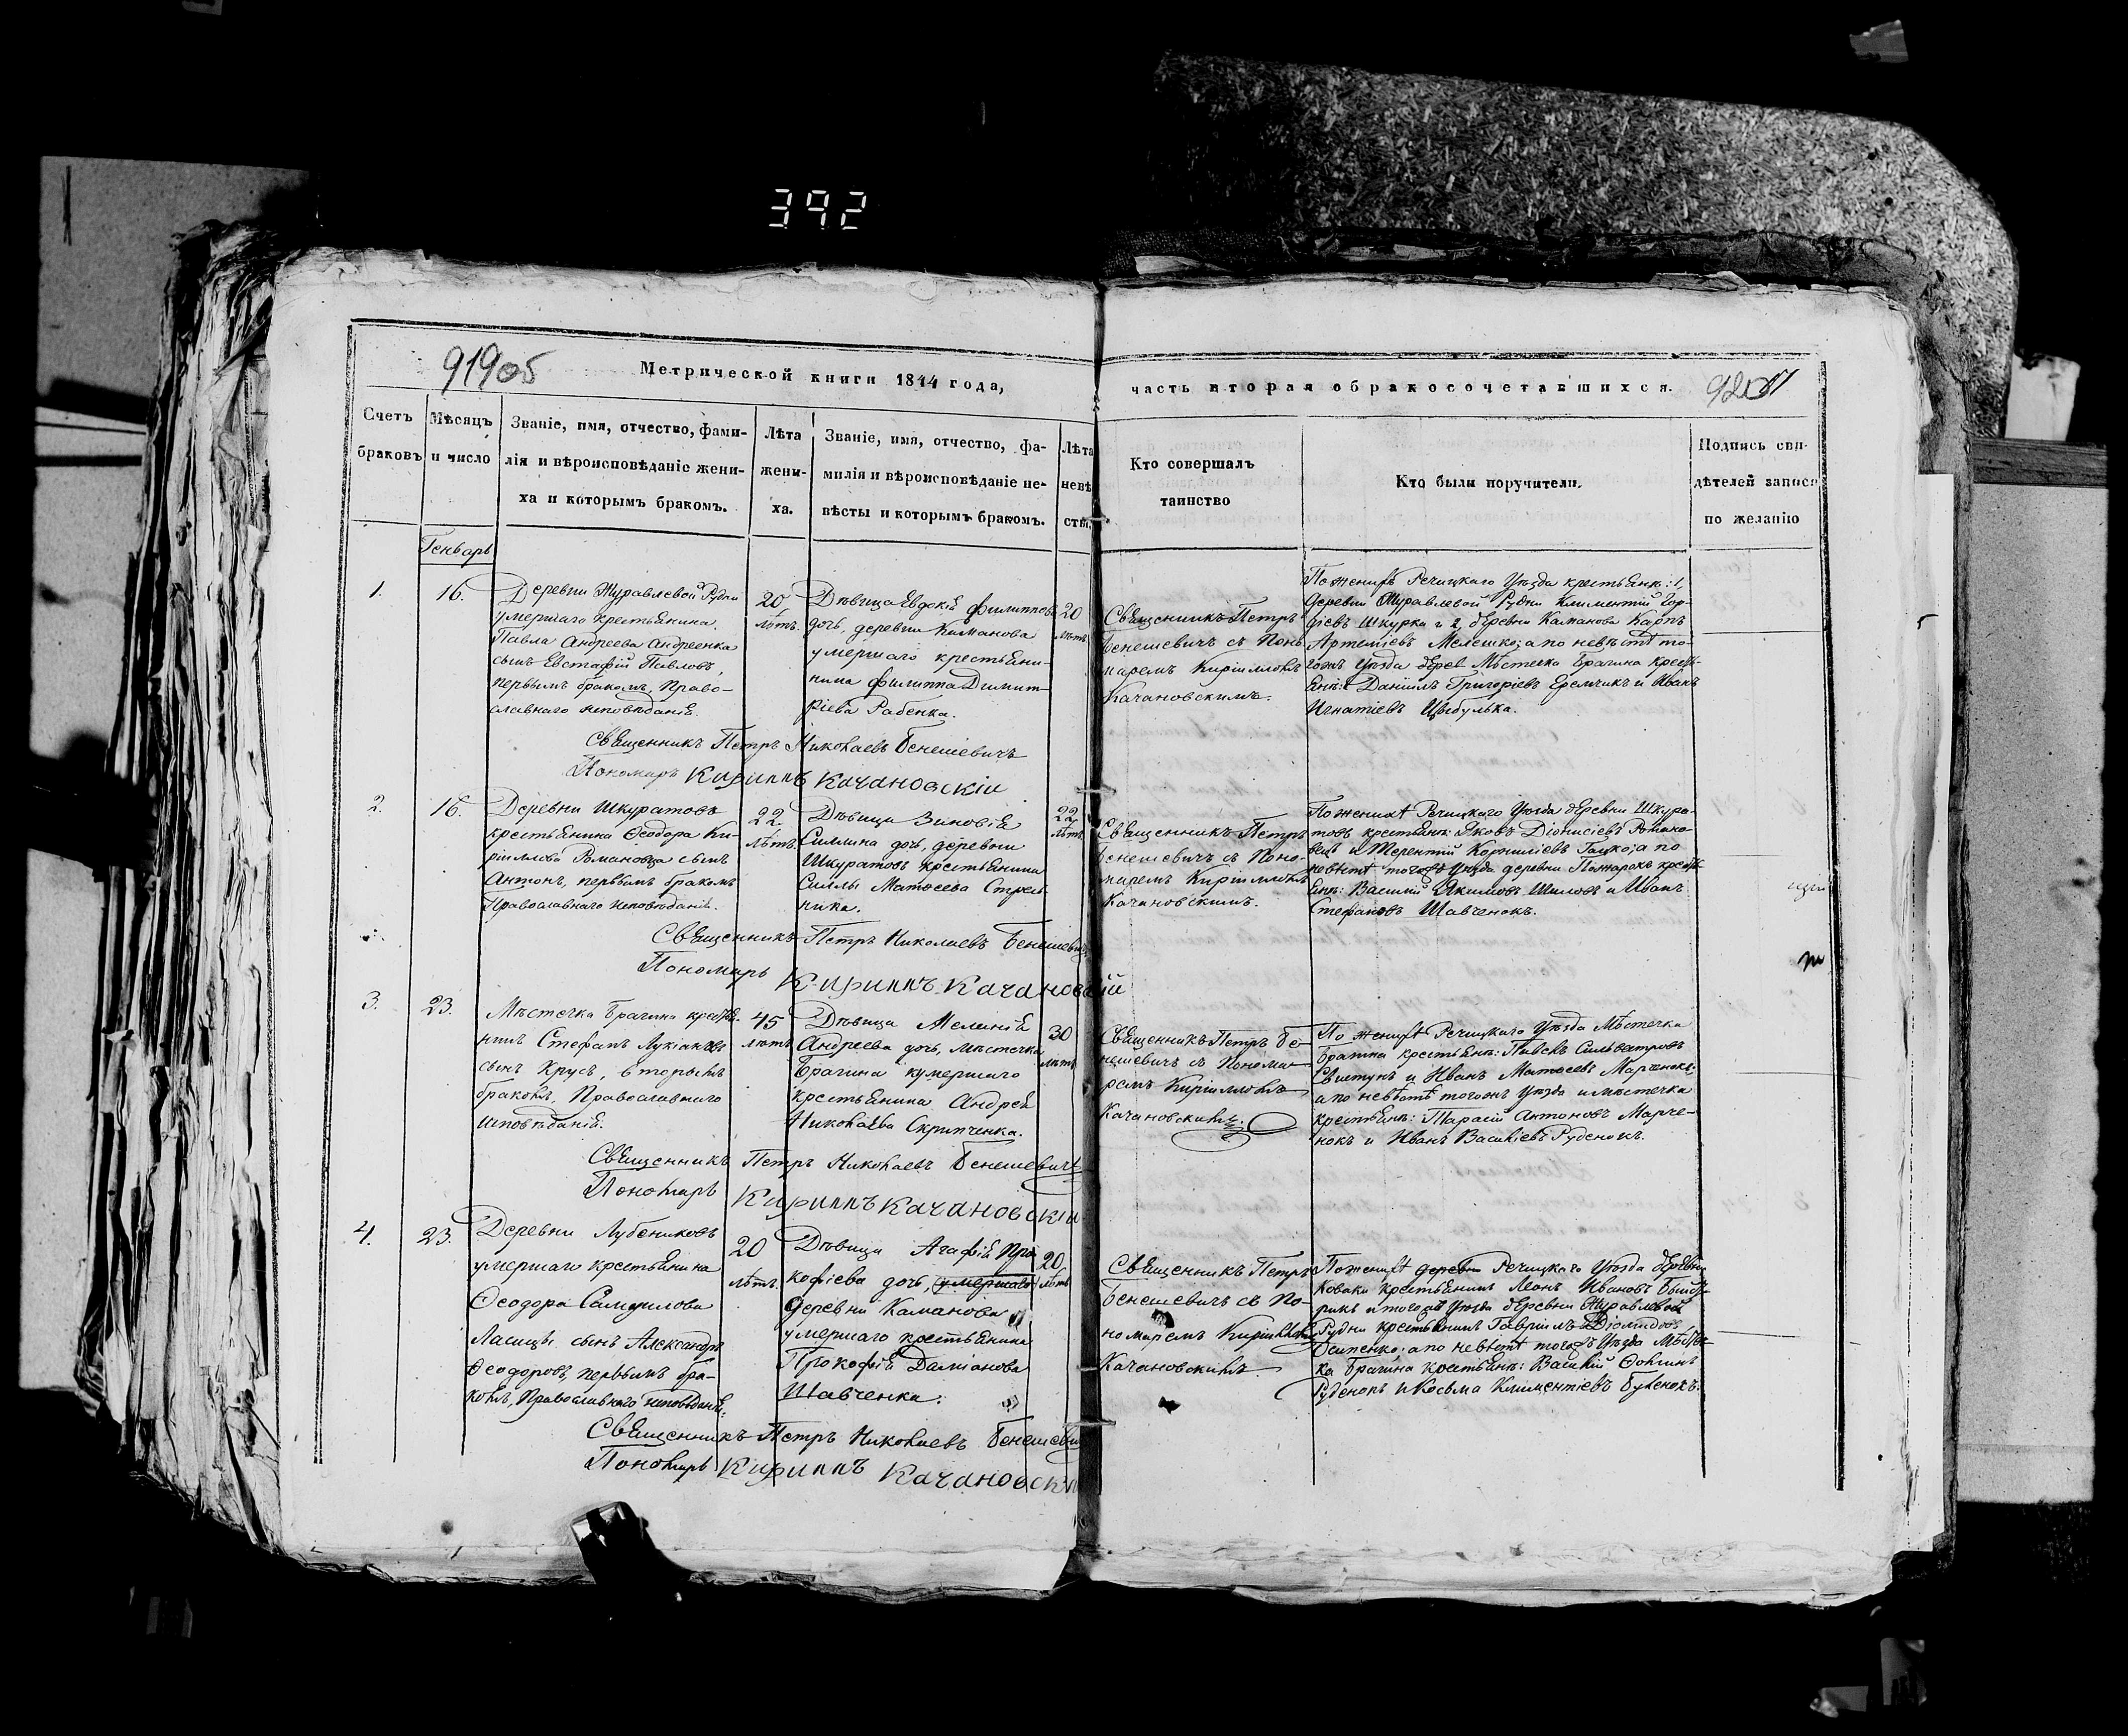 392
91905
Метрической книги 1844 года,
часть вторая о бракосочетавшихся.
Счетъ
браковъ
Мѣсяцъ
и число
Званіе, имя, отчество, фами-
лія и вѣроисповѣданіе жени-
ха и которымъ бракомъ.
Лѣта
жени-
ха.
Званіе, имя, отчество, фа-
милія и вѣроисповѣданіе не-
вѣсты и которымъ бракомъ.
Лѣта
невѣ
сты,
Кто совершалъ
таинство
Кто были поручители.
Подпись сви-
дѣтелей записи
по желанію
Генварь
1.
16.
Деревни Журавлевой Рудни
умершаго крестьянина
Павла Андреева Андреенка
сынъ Евстафій Павловъ,
первымъ бракомъ, Право-
славнаго исповѣданія.
20
лѣтъ.
Дѣвица Евдокія Филиппова
дочь, деревни Каманова
умершаго крестьяни-
нина Филиппа Димит-
ріева Рабенка.
20
лѣтъ
Священникъ Петръ
Бенешевичъ съ Поно
маремъ Кирилломъ
Качановскимъ.
По женихѣ Речицкаго Уѣзда крестьяне: 1,
деревни Журавлевой Рудни Климентій Гор-
діевъ Шкурка и 2, деревни Каманова Карпъ
Артеміевъ Мелешко; а по невѣстѣ то-
гожъ уѣзда Мѣстечка Брагина кресть-
яне: Даніилъ Григоріевъ Еремчикъ и Иванъ
Игнатіевъ Цыбулька.
Священникъ Петръ Николаевъ Бенешевичъ
Пономарь Кириллъ Качановскій
2.
16.
Деревни Шкуратовъ
крестьянина Ѳеодора Ки-
риллова Романовца сынъ
Антонъ, первымъ бракомъ
Православнаго исповѣданія.
22
лѣтъ
Дѣвица Зиновія
Силина дочь, деревни
Шкуратовъ крестьянина
Силы Матѳеева Стрель
ника.
22
лѣтъ
Священникъ Петръ
Бенешевичъ съ Поно-
маремъ Кирилломъ
Качановскимъ.
По женихѣ Речицкаго Уѣзда деревни Шкура-
товъ крестьяне: Яковъ Діонисіевъ Романо-
вецъ и Терентій Корниліевъ Гацко; а по
невѣстѣ тогожъ уѣзда деревни Пожарокъ кресть
яне: Василій Якимовъ Шиловъ и Иванъ
Стефановъ Шавченокъ.
Священникъ Петръ Николаевъ Бенешевичъ
Пономарь Кириллъ Качановскій
3.
23.
Мѣстечка Брагина крестья-
нинъ Стефанъ Лукіановъ
сынъ Крусь, вторымъ
бракомъ, Православнаго
исповѣданія.
45
лѣтъ
Дѣвица Меланія
Андреева дочь, мѣстечка
Брагина умершаго
крестьянина Андрея
Николаева Скрипченка.
30
лѣтъ
Священникъ Петръ Бе-
нешевичъ съ Понома-
ремъ Кирилломъ
Качановскимъ.
По женихѣ Речицкаго Уѣзда Мѣстечка
Брагина крестьяне: Павелъ Сильвестровъ
Свистунъ и Иванъ Матѳеевъ Марченокъ;
а по невѣстѣ тогожъ уѣзда и мѣстечка
крестьяне: Тарасій Антоновъ Марче-
нокъ и Иванъ Василіевъ Руденокъ.
Священникъ Петръ Николаевъ Бенешевичъ
Пономарь Кириллъ Качановскій
4.
23.
Деревни Лубениковъ
умершаго крестьянина
Ѳеодора Самуилова
Ласицы сынъ Александръ
Ѳеодоровъ, первымъ бра-
комъ, Православнаго исповѣданія.
20
лѣтъ.
Дѣвица Агафія Про
кофіева дочь, умершаго
деревни Каманова
умершаго крестьянина
Прокофія Даміанова
Шавченка.
20
лѣтъ
Священникъ Петръ
Бенешевичъ съ По-
номаремъ Кирилломъ
Качановскимъ.
По женихѣ деревни Речицкаго Уѣзда деревни
Коваки крестьянинъ Леонъ Ивановъ
и тогожъ уѣзда деревни Журавлевой
Рудни крестьянинъ Гавріилъ Діомидовъ
Осипенко; а по невѣстѣ тогожъ Уѣзда Мѣстеч-
ка Брагина крестьяне: Василій Ѳоминъ
Руденокъ и Косьма Климентіевъ Буленокъ.
Священникъ Петръ Николаевъ Бенешевичъ
Пономарь Кириллъ Качановскій